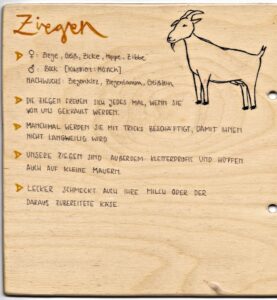 Ziegen
♀: Ziege, Geiß, Zicke, Hippe, Zibbe
♂: Bock [Kastriert: Mönch]
NACHWUCHS: Ziegenkitz, Ziegenlamm, Geißlein
DIE ZIEGEN FREUEN SICH JEDES MAL, WENN SIE
VON UNS GEKRAULT WERDEN.
MANCHMAL WERDEN SIE MIT TRICKS BESCHÄFTIGT, DAMIT IHNEN
NICHT LANGWEILIG WIRD
UNSERE ZIEGEN SIND AUßERDEM KLETTERPROFIS UND HÜPFEN
AUCH AUF KLEINE MAUERN.
LECKER SCHMECKT AUCH IHRE MILCH ODER DER
DARAUS ZUBEREITETE KÄSE